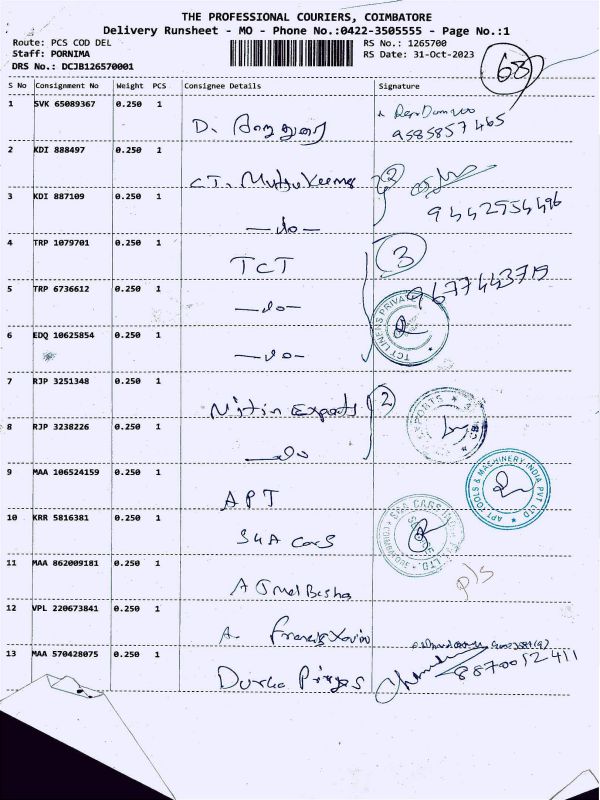 THE PROFESSIONAL COURIERS, COIMBATORE
Delivery Runsheet - MO - Phone No.:0422-3505555 - Page No.:1
Route: PCS COD DEL RS No.: 1265700
Staff: PORNIMA RS Date: 31-Oct-2023
DRS No.: DCJB126570001 68
S No Consignment No Weight PCS Consignee Details Signature
1 SVK 65089367 0.250 1 D.
9585857465
2 KDI 888497 0.250 1 CT. 2
3 KDI 887109 0.250 1 —do— 9442954496
4 TRP 1079701 0.250 1 TCT 3
5 TRP 6736612 0.250 1 —do—
6 EDQ 10625854 0.250 1 —do— TCT LINENS PRIVATE
7 RJP 3251348 0.250 1 Nitin Exports 2
8 RJP 3238226 0.250 1 —do
9 MAA 106524159 0.250 1 APT APT TOOLS & MACHINERY INDIA PVT LTD
10 KRR 5816381 0.250 1 Cars
11 MAA 862009181 0.250 1 p/s
12 VPL 220673841 0.250 1 A. Francis Xavier
13 MAA 570428075 0.250 1 8870052411